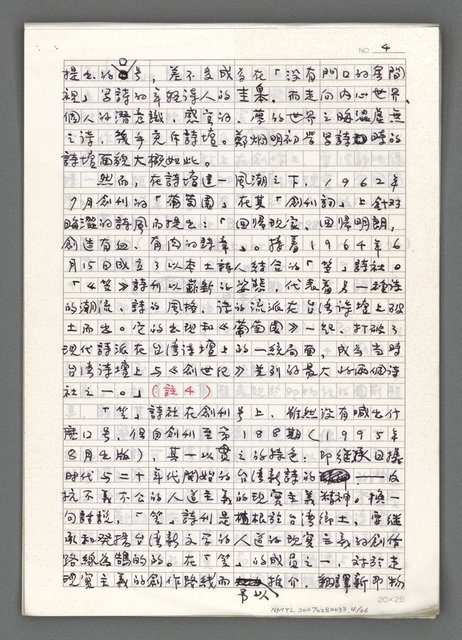 NO. 4
提出的口號，差不多成為在「沒有門口的房間
裡」寫詩的年輕詩人的圭臬。而走向內心世界、
個人的潛意識、感官的、夢的世界之晦澀虛無
之詩，幾乎充斥詩壇。鄭炯明初學寫詩時的
詩壇面貌大概如此。
然而，在詩壇這一風潮之下，1962年
7月創刊的「葡萄園」在其「創刊詞」上針對
晦澀的詩風而提出：「回歸現實，回歸明朗，
創造有血、有肉的詩章」。接着1964年6
月15日成立了以本土詩人結合的「笠」詩社。
「《笠》詩刊以嶄新的姿態，代表着另一種詩
的潮流、詩的風格、詩的流派在台灣詩壇上破
土而出。它的出現和《葡萄園》一起，打破了
現代詩派在台灣詩壇上的一統局面，成為當時
台灣詩壇上與《創世紀》並列的最大的兩個詩
社之一。」（註4）
「笠」詩社在創刊號上，雖然沒有喊出什
麼口號，但自創刊至第188期（1995年
8月出版），其一以貫之的特色，即繼承日據
時代與二十年代開始的台灣新詩的——反
抗不義不公的人道主義的現實主義精神。換一
句話說，「笠」詩刊是植根於台灣鄉土，要繼
承和發揚台灣新文學的人道的現實主義的創作
路線為鵠的的。在「笠」的成員之一，對於走
現實主義的創作路線而 推介、翻譯新即物
予以
20×25
NMTL 20070280033 4/26